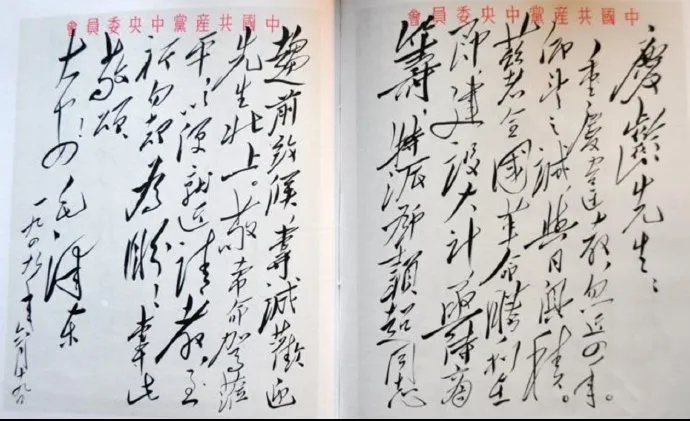 中國共產黨中央委員會
慶齡先生：
重慶違教，忽近四年。
仰望之誠，與日俱積。
兹者全國革命勝利在
即，建設大計，亟待商
籌，特派鄧穎超同志
中國共產黨中央委員會
趨前致候，專誠歡迎
先生北上。敬希命駕蒞
平，以便就近請教，至
祈勿却為盼！專此
敬頌
大安！
毛澤東
一九四九年六月十九